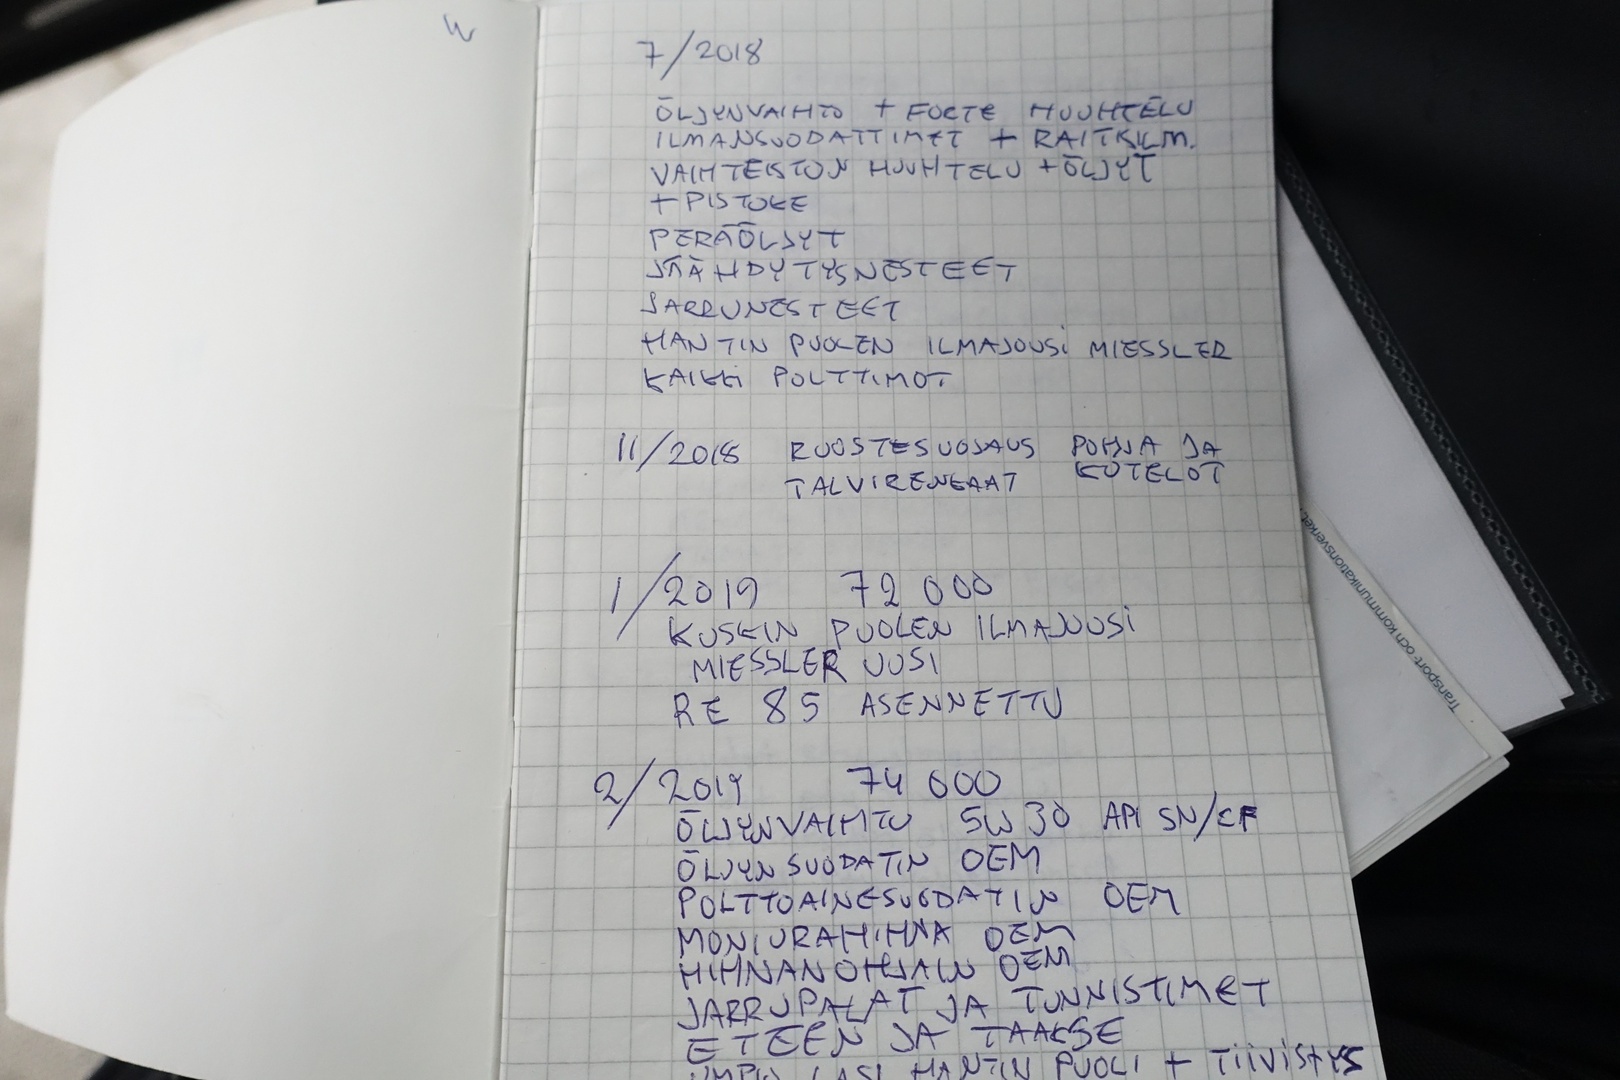 7/2018
ÖLJYNVAIHTO + FORTE HUUHTELU
ILMANSUODATTIMET + RAITISILM.
VAIHTEISTON HUUHTELU + ÖLJYT
+ PISTOKE
PERÄÖLJYT
JÄÄHDYTYSNESTEET
JARRUNESTEET
HANTIN PUOLEN ILMAJOUSI MIESSLER
KAIKKI POLTTIMOT
11/2018 RUOSTESUOJAUS POHJA JA
KOTELOT
TALVIRENKAAT
1/2019 72 000
KUSKIN PUOLEN ILMAJOUSI
MIESSLER UUSI
RE 85 ASENNETTU
2/2019 74 000
ÖLJYNVAIHTO 5W30 API SN/CF
ÖLJYNSUODATIN OEM
POLTTOAINESUODATIN OEM
MONIURAHIHNA OEM
HIHNANOHJAIN OEM
JARRUPALAT JA TUNNISTIMET
ETEEN JA TAAKSE
UMPIO LASI HANTIN PUOLI + TIIVISTYS
Transport- och kommunikationsverket